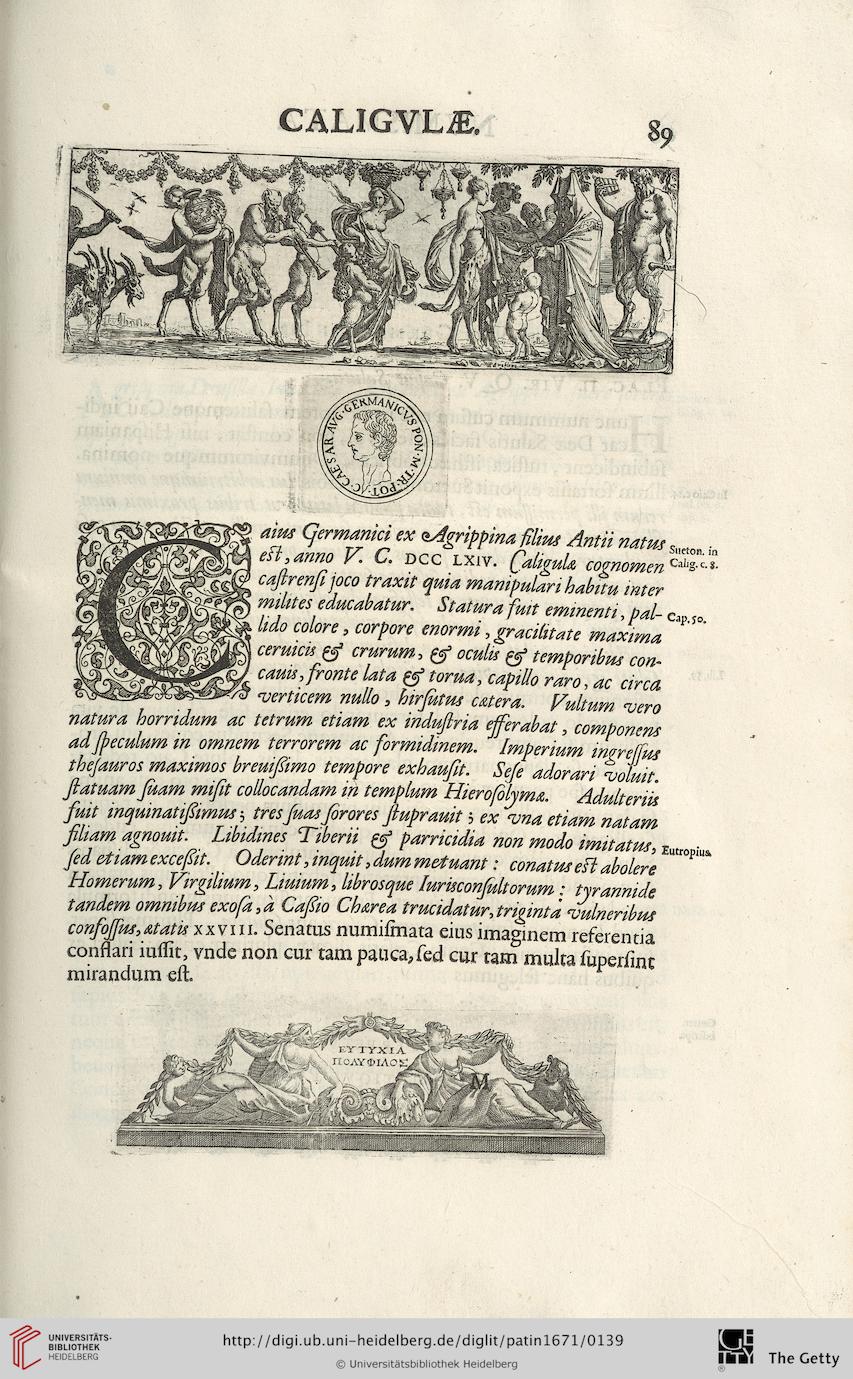 CALIGVLÆ.
89
C·CAESAR AVG·GERMANICVS PON·M·TR·POT·
Caius Germanici ex Agrippina filius Antii natus
Sueton. in
est, anno V. C. DCC LXIV. Caligulæ cognomen
Calig. c. 8.
castrensi joco traxit quia manipulari habitu inter
milites educabatur. Statura fuit eminenti, pal-
Cap. 50.
lido colore, corpore enormi, gracilitate maxima
ceruicis & crurum, & oculis & temporibus con-
cauis, fronte lata & torua, capillo raro, ac circa
verticem nullo, hirsutus cætera. Vultum vero
natura horridum ac tetrum etiam ex industria efferabat, componens
ad speculum in omnem terrorem ac formidinem. Imperium ingressus
thesauros maximos breuißimo tempore exhausit. Sese adorari voluit.
statuam suam misit collocandam in templum Hierosolymæ. Adulteriis
fuit inquinatißimus; tres suas sorores stuprauit; ex vna etiam natam
filiam agnouit. Libidines Tiberii & parricidia non modo imitatus,
Eutropius.
sed etiam exceßit. Oderint, inquit, dum metuant: conatus est abolere
Homerum, Virgilium, Liuium, librosque Iurisconsultorum: tyrannide
tandem omnibus exosa, à Caßio Chærea trucidatur, triginta vulneribus
confossus, ætatis XXVIII. Senatus numismata eius imaginem referentia
conflari iussit, vnde non cur tam pauca, sed cur tam multa supersint
mirandum est.
ΕΥΤΥΧΙΑ
ΠΟΛΥΦΙΛΟΣ
M
UNIVERSITÄTS-
BIBLIOTHEK
HEIDELBERG
http://digi.ub.uni-heidelberg.de/diglit/patin1671/0139
© Universitätsbibliothek Heidelberg
GE
TTY
®
The Getty